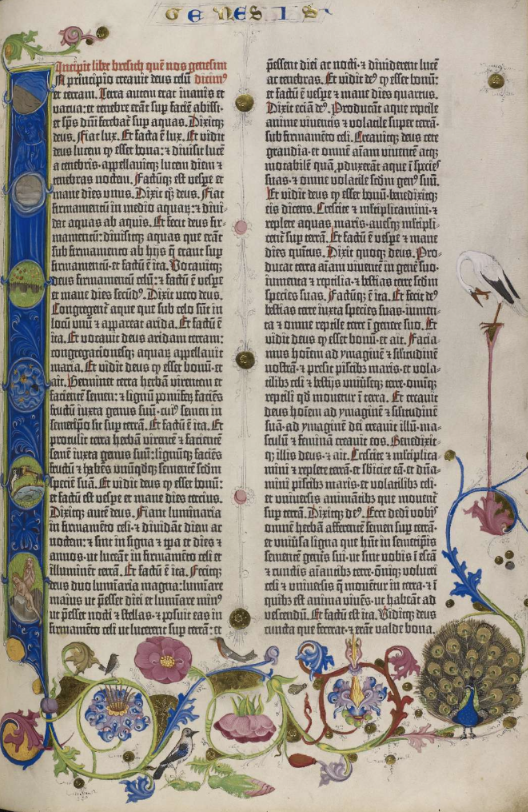 GENESIS
Incipit liber bresich quē nos genesim
In principio creavit deus celū dicimus
et terram. Terra autem erat inanis et
vacua: et tenebre erāt sup faciē abissi:
et spūs dni ferebat̄ sup aquas. Dixitq;
deus. Fiat lux. Et facta ē lux. Et vidit
deus lucem qꝫ esset bona: et divisit lucē
a tenebris. appellavitq; lucem diem et
tenebras noctem. Factūq; est vespe et
mane dies unus. Dixit q̄ꝫ deus. Fiat
firmamentū in medio aquaꝝ: et divi-
dat aquas ab aquis. Et fecit deus fir-
mamentū: divisitq; aquas que erāt
sub firmamento ab hijs q̄ erant sup
firmamentū: et factū ē ita. Vocavitq;
deus firmamentū celū: et factū ē vespe
et mane dies secūdꝰ. Dixit vero deus.
Congregent̄ aque que sub celo sūt in
locū unū et appareat arida. Et factū ē
ita. Et vocavit deus aridam terram:
congregacionesq; aquaꝝ appellavit
maria. Et vidit deus qꝫ esset bonū. et
ait. Germinet terra herbā virentem et
facientē semen: et lignū pomifeꝝ faciēs
fructū iuxta genus suū. cuiꝰ semen in
semetipo sit sup terrā. Et factū ē ita. Et
protulit terra herbā virentē et facientē
semē iuxta genus suū: lignūq; faciēs
fructū et habēs unūqdq; sementē scdm
speciē suā. Et vidit deus qꝫ esset bonū:
et factū est vespe et mane dies tercius.
Dixitq; autē deus. Fiant luminaria
in firmamēto celi. et dividāt diem ac
noctem: et sint in signa et tpa et dies et
annos. ut luceāt in firmamēto celi et
illuminēt terrā. Et factū ē ita. Fecitq;
deus duo luminaria magna: luminare
maius ut pesset diei et luminare minꝰ
ut pesset nocti et stellas. et posuit eas in
firmamēto celi ut lucerent sup terrā: et
pessent diei ac nocti. et dividerent lucē
ac tenebras. Et vidit deꝰ qꝫ esset bonū:
et factū ē vespe et mane dies quartus.
Dixit eciā deꝰ. Producāt aque reptile
anime viventis et volatile super terrā.
sub firmamēto celi. Creavitq; deus cete
grandia. et omnē aīam viventē atq;
motabilē quā pduxerāt aque ī species
suas. et omne volatile scdm genꝰ suū.
Et vidit deus qꝫ esset bonū. benedixitq;
eis dicens. Crescite et mltiplicamini. et
replete aquas maris. avesq; mltipli-
cent̄ sup terrā. Et factū ē vespe et mane
dies quintus. Dixit quoq; deus. Pro-
ducat terra aīam viventē in genē suo.
iumenta et reptilia. et bestias terre scdm
species suas. Factūq; ē ita. Et fecit deꝰ
bestias terre iuxta species suas. iumen-
ta et omne reptile terre ī genere suo. Et
vidit deus qꝫ esset bonū. et ait. Facia-
mus hoīem ad ymaginē et silitudinē
nostrā. et presit piscibꝫ maris. et vola-
tilibꝫ celi et bestijs univseq; terre. omniq;
reptili qd movet̄ ī terra. Et creavit
deus hoīem ad ymaginē et silitudinē
suā. ad ymaginē dei creavit illū. ma-
sculū et feminā creavit eos. Benedixit-
q; illis deus. et ait. Crescite et mltiplica-
mini et replete terrā. et sbicite eā. et dña-
mini piscibꝫ maris. et volatilibꝫ celi.
et univsis animātibꝫ que movent̄
sup terrā. Dixitq; deꝰ. Ecce dedi vobis
omnē herbā afferentē semen sup terrā.
et univsa ligna que hūt in semetipis
sementē genis sui. ut sint vobis ī escā
et cunctis aīantibꝫ terre. omīq; volucri
celi et univsis q̄ movent̄ in terra. et ī
quibꝫ est anima vivēs. ut habeāt ad
vescendū. Et factū est ita. Viditq; deus
cuncta que fecerat. et erāt valde bona.